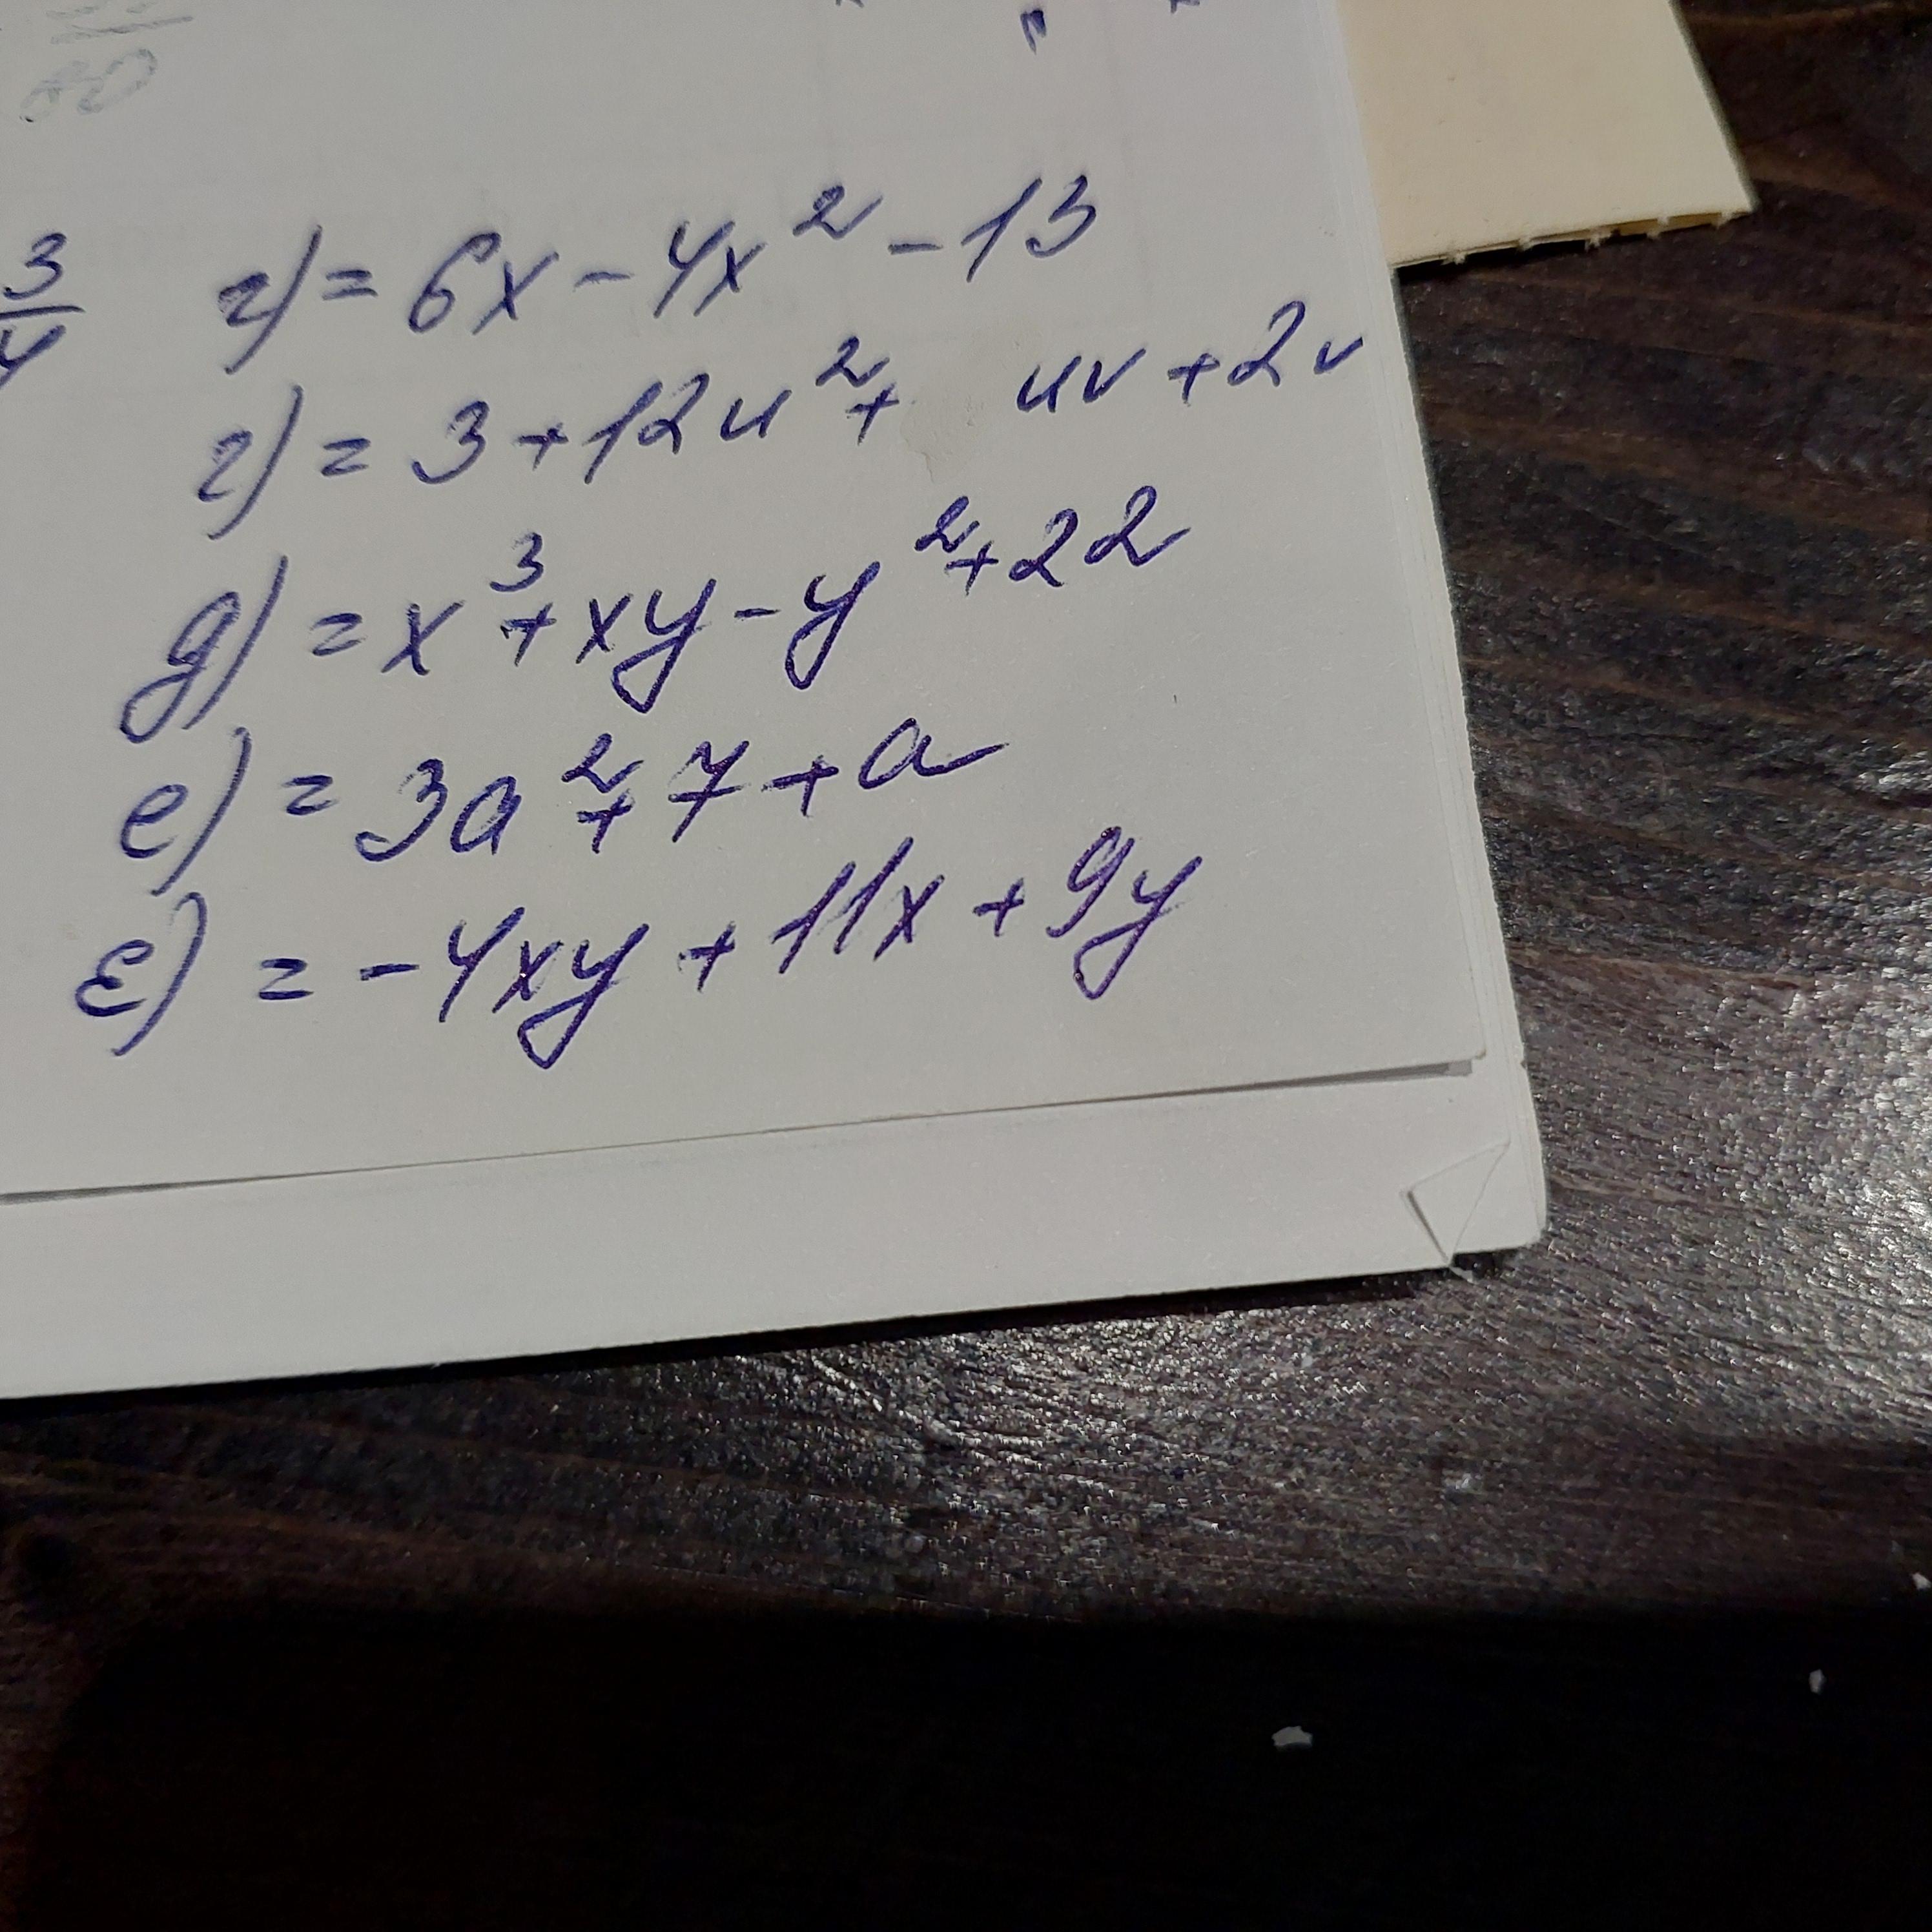 3/4 г) = 6x - 4x² - 13
г) = 3 + 12u² + uv + 2v
д) = x³ + xy - y² + 22
е) = 3a² + 7 + a
є) = -4xy + 11x + 9y